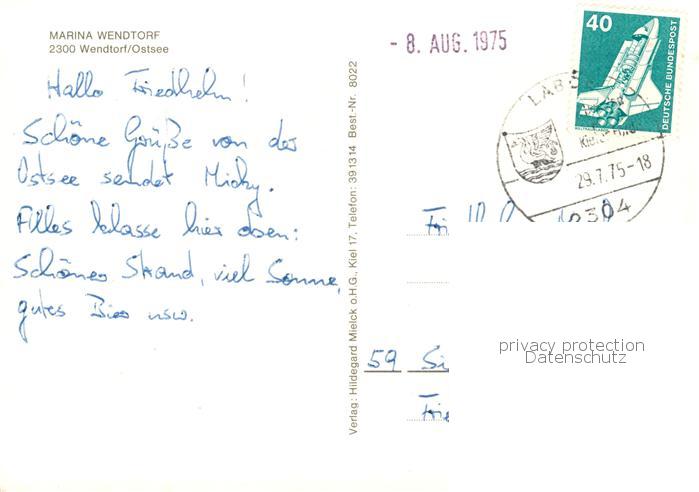 MARINA WENDTORF
2300 Wendtorf/Ostsee
Hallo Friedhelm!
Schöne Grüße von der
Ostsee sendet Micky.
Alles klasse hier oben:
Schöner Strand, viel Sonne,
gutes Bier usw.
Verlag: Hildegard Mielck o.H.G., Kiel 17, Telefon: 391314 Best.-Nr. 8022
- 8. AUG. 1975
40
DEUTSCHE BUNDESPOST
LABOE
29.7.75-18
2304
59 Si
privacy protection
Datenschutz